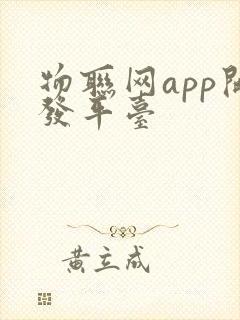 物聯网app開
發平臺
黄立成